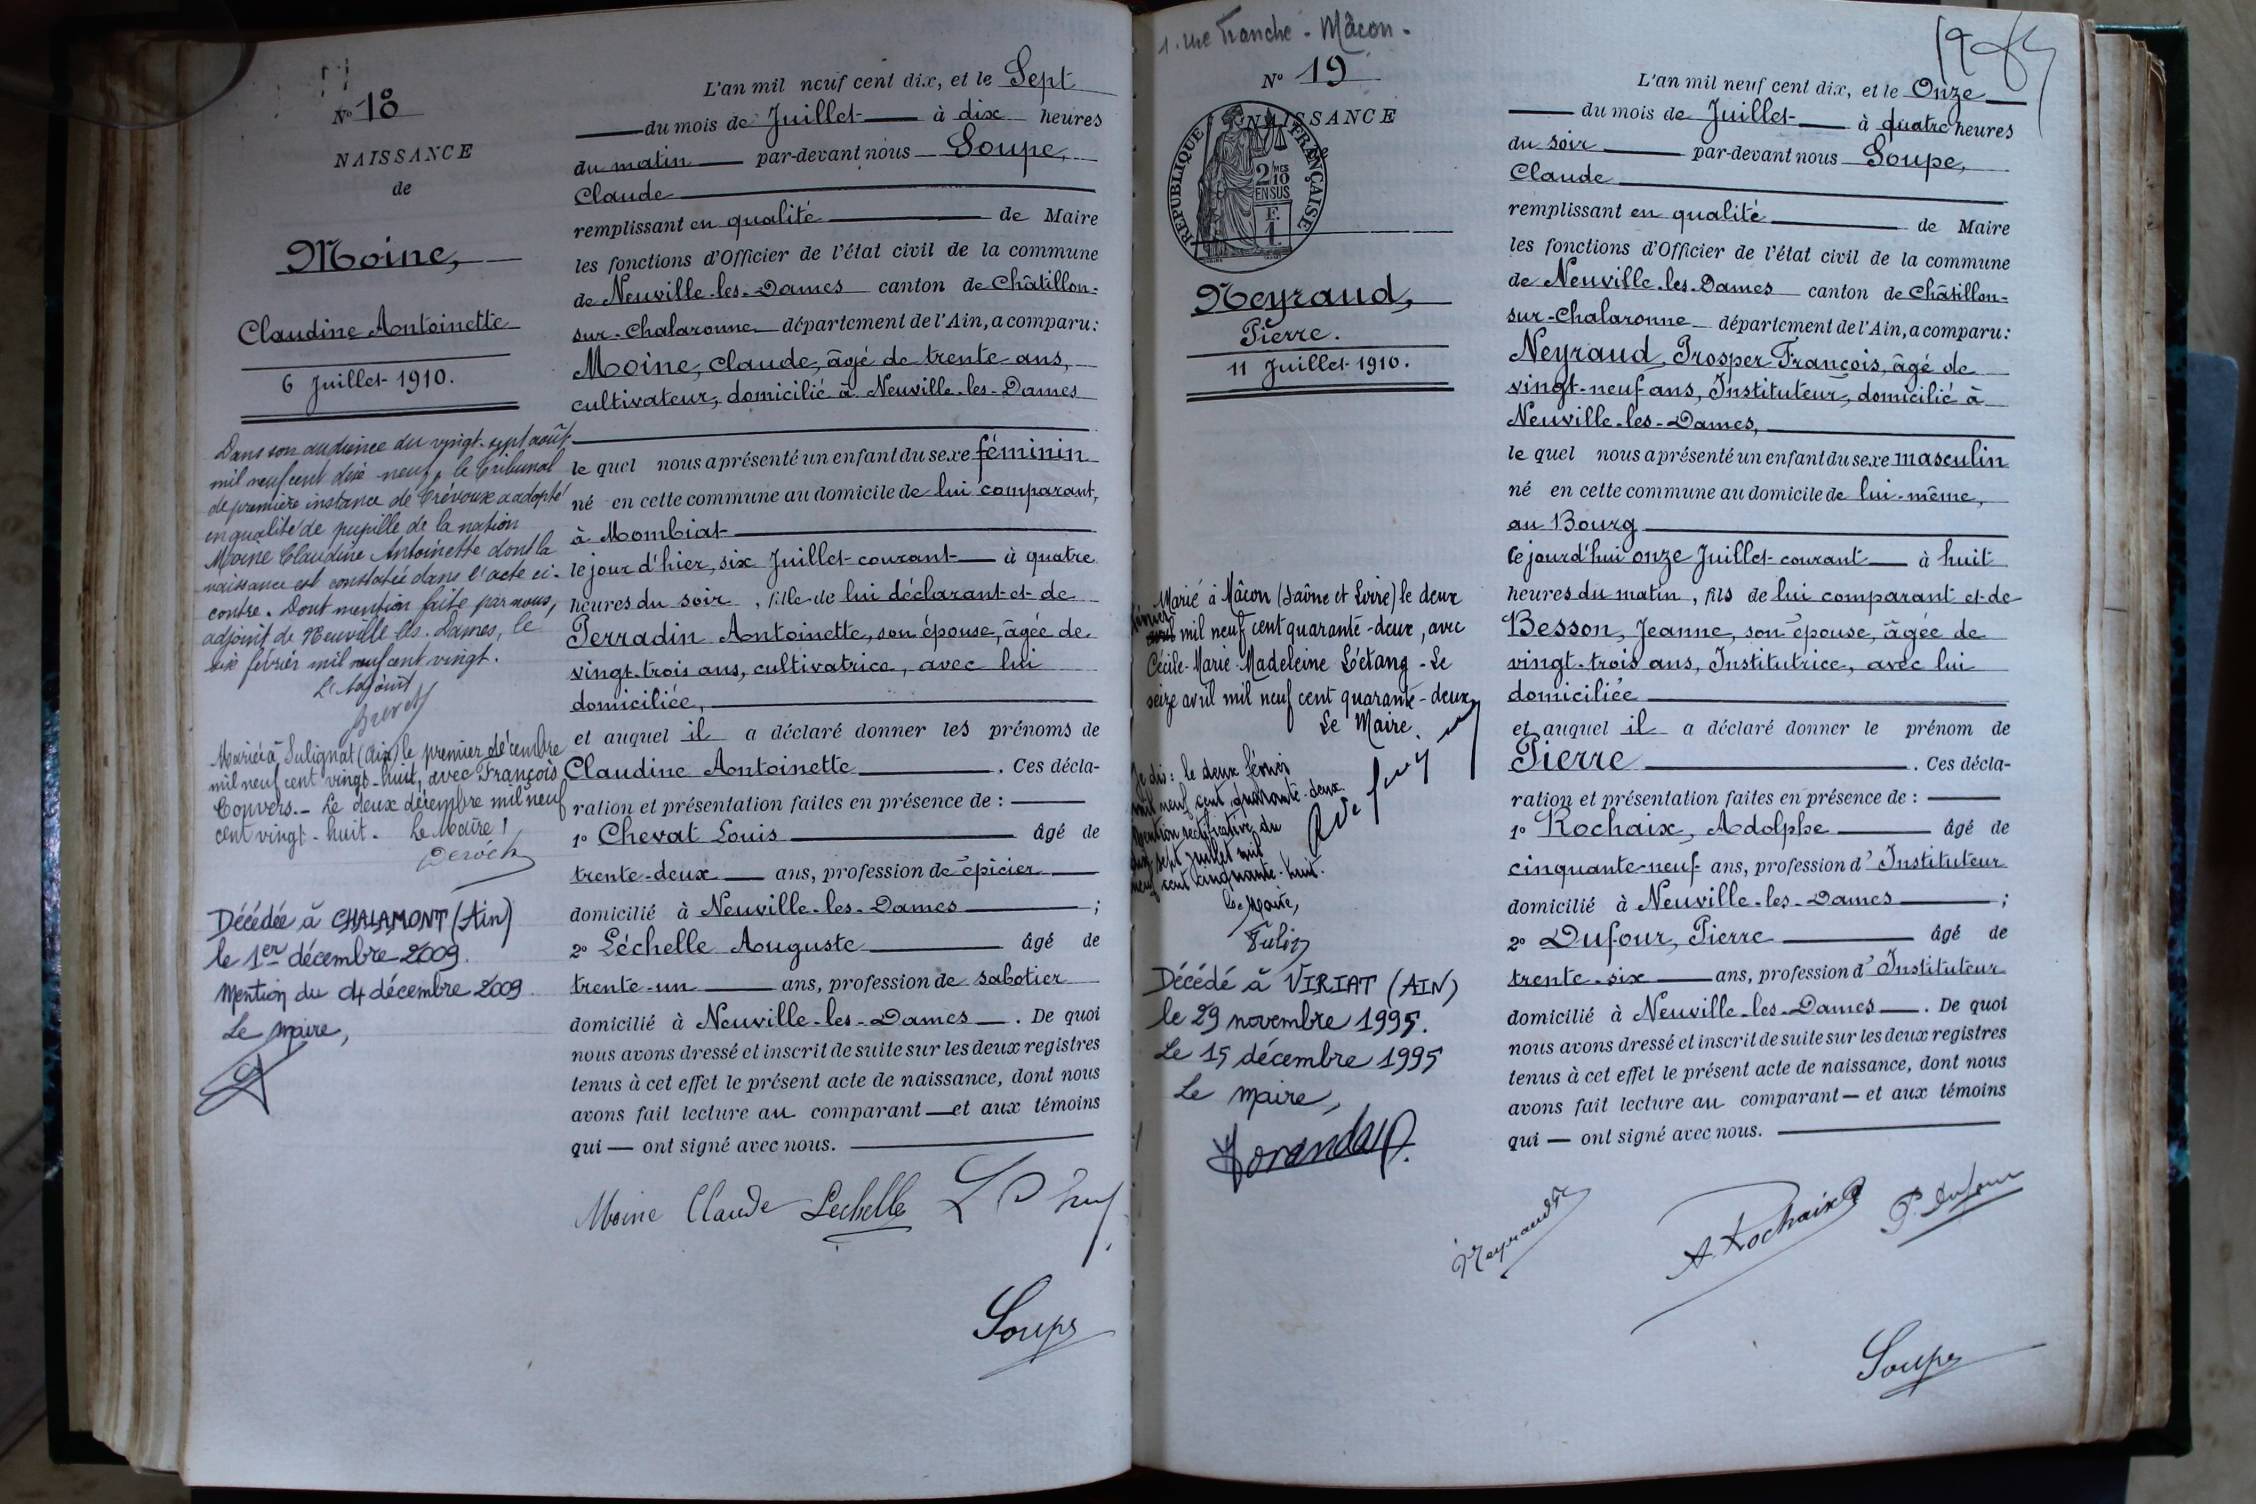 N° 18
NAISSANCE
de
Moine,
Claudine Antoinette
6 Juillet 1910.
Dans son audience du vingt-sept août
mil neuf cent dix neuf, le Tribunal
de première instance de Trévoux a adopté
en qualité de pupille de la nation
Moine Claudine Antoinette dont la
naissance est constatée dans l'acte ci-
contre. Dont mention faite par nous,
adjoint de Neuville les-Dames, le
six février mil neuf cent vingt.
L'Adjoint
Mariée à Sulignat (Ain) le premier décembre
mil neuf cent vingt-huit, avec François
Convers. - Le deux décembre mil neuf
cent vingt-huit. Le Maire
Décédée à CHALAMONT (Ain)
le 1er décembre 2009.
Mention du 04 décembre 2009
Le maire,
L'an mil neuf cent dix, et le Sept
du mois de Juillet à dix heures
du matin par-devant nous Soupe,
Claude
remplissant en qualité de Maire
les fonctions d'Officier de l'état civil de la commune
de Neuville-les-Dames canton de Châtillon-
sur-Chalaronne département de l'Ain, a comparu:
Moine, Claude, âgé de trente ans,
cultivateur, domicilié à Neuville-les-Dames
le quel nous a présenté un enfant du sexe féminin
né en cette commune au domicile de lui comparant,
à Mombiat
le jour d'hier, six Juillet courant à quatre
heures du soir, fille de lui déclarant et de
Perradin Antoinette, son épouse, âgée de
vingt-trois ans, cultivatrice, avec lui
domiciliée,
et auquel il a déclaré donner les prénoms de
Claudine Antoinette. Ces décla-
ration et présentation faites en présence de :
1° Chevat Louis âgé de
trente-deux ans, profession de épicier
domicilié à Neuville-les-Dames ;
2° Léchelle Auguste âgé de
trente-un ans, profession de sabotier
domicilié à Neuville-les-Dames. De quoi
nous avons dressé et inscrit de suite sur les deux registres
tenus à cet effet le présent acte de naissance, dont nous
avons fait lecture au comparant et aux témoins
qui — ont signé avec nous.
Moine Claude Lechelle
Soupe
1. rue Franche - Mâcon -
N° 19
NAISSANCE
RÉPUBLIQUE FRANÇAISE
2/10 MES
EN SUS
E.
1.
Neyraud,
Pierre.
11 Juillet 1910.
Marié à Mâcon (Saône et Loire) le deux
février mil neuf cent quarante-deux, avec
Cécile-Marie-Madeleine Létang - Le
seize avril mil neuf cent quarante-deux
Le Maire.
Je dis: le deux février
mil neuf cent quarante-deux.
Mention rectificative du
dix sept juillet mil
neuf cent cinquante-huit.
Le Maire,
Décédé à VIRIAT (AIN)
le 29 novembre 1995.
Le 15 décembre 1995
Le maire,
L'an mil neuf cent dix, et le Onze
du mois de Juillet à quatre heures
du soir par-devant nous Soupe,
Claude
remplissant en qualité de Maire
les fonctions d'Officier de l'état civil de la commune
de Neuville-les-Dames canton de Châtillon-
sur-Chalaronne département de l'Ain, a comparu:
Neyraud, Prosper François, âgé de
vingt-neuf ans, Instituteur, domicilié à
Neuville-les-Dames,
le quel nous a présenté un enfant du sexe masculin
né en cette commune au domicile de lui-même,
au Bourg
le jourd'hui onze Juillet courant à huit
heures du matin, fils de lui comparant et de
Besson, Jeanne, son épouse, âgée de
vingt-trois ans, Institutrice, avec lui
domiciliée
et auquel il a déclaré donner le prénom de
Pierre. Ces décla-
ration et présentation faites en présence de :
1° Rochaix, Adolphe âgé de
cinquante-neuf ans, profession d'Instituteur
domicilié à Neuville-les-Dames ;
2° Dufour, Pierre âgé de
trente-six ans, profession d'Instituteur
domicilié à Neuville-les-Dames. De quoi
nous avons dressé et inscrit de suite sur les deux registres
tenus à cet effet le présent acte de naissance, dont nous
avons fait lecture au comparant — et aux témoins
qui — ont signé avec nous.
Neyraud
A. Rochaix
P. Dufour
Soupe